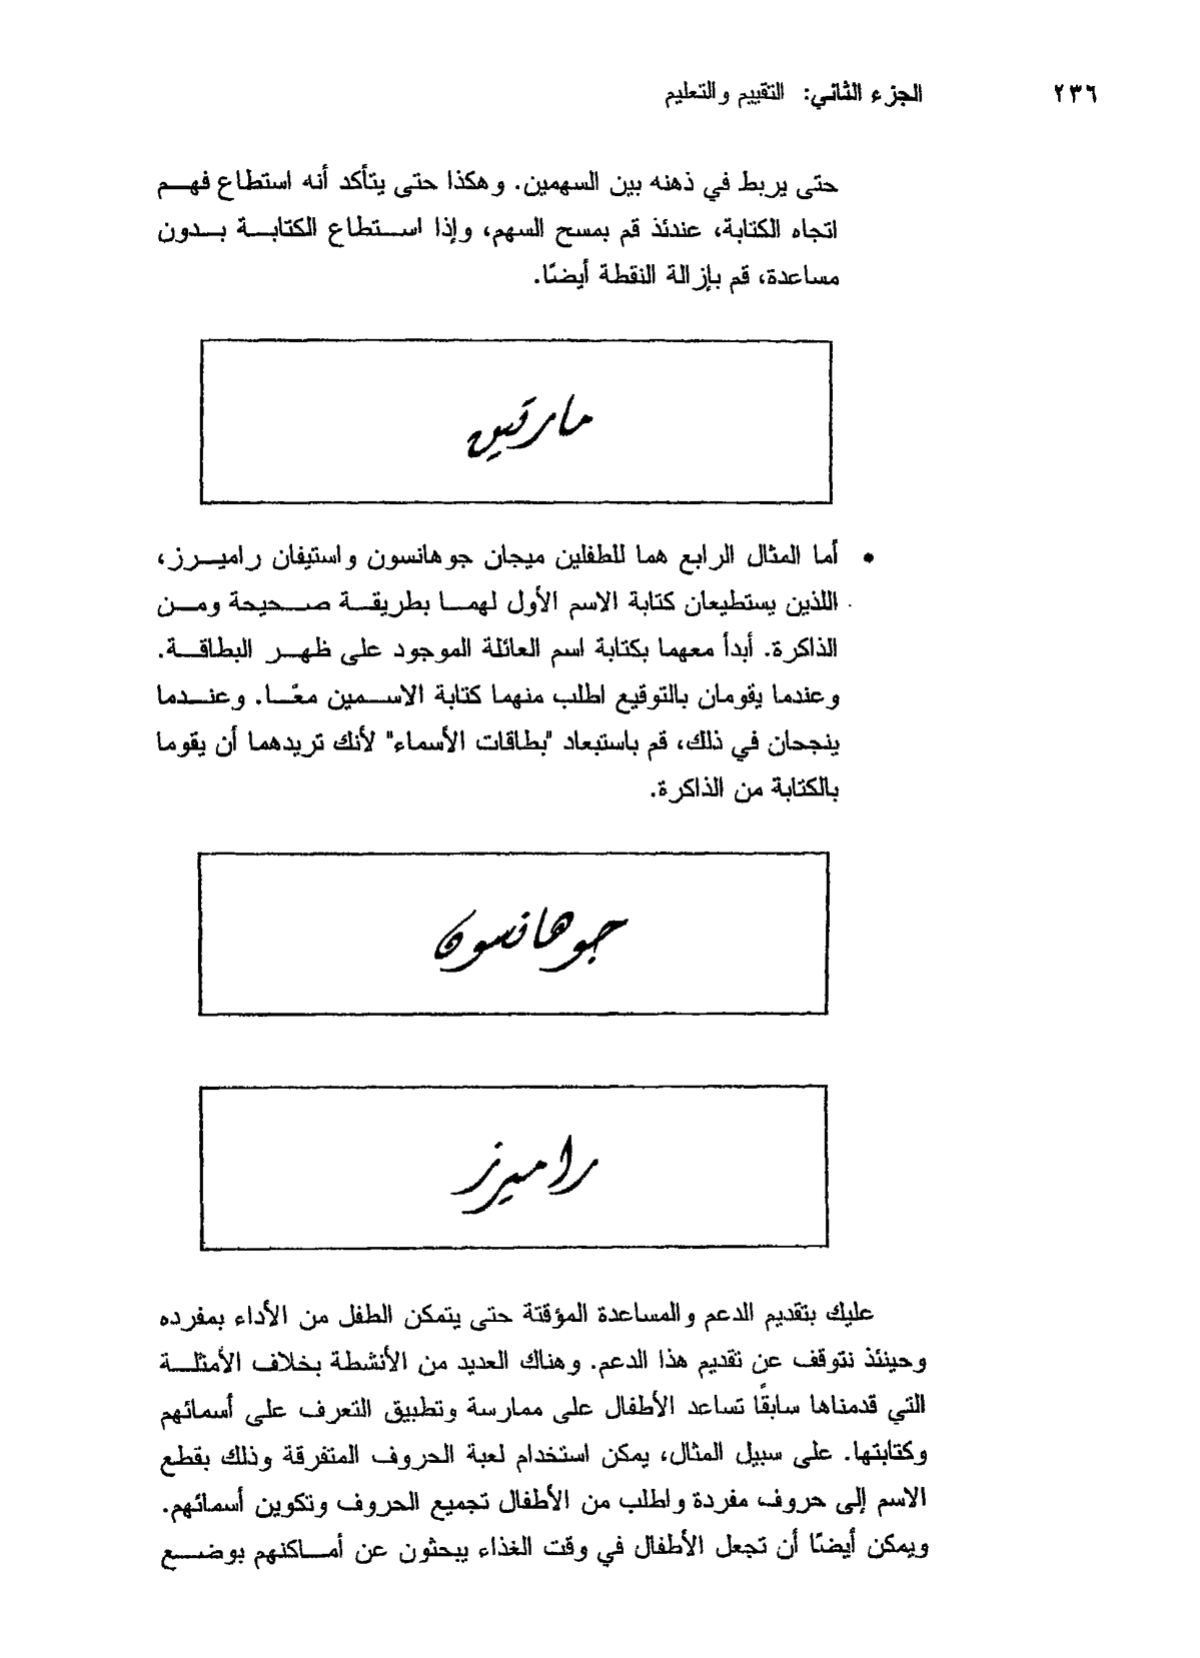 ٢٣٦ الجزء الثاني: التقييم والتعليم
حتى يربط في ذهنه بين السهمين. وهكذا حتى يتأكد أنه استطاع فهم
اتجاه الكتابة، عندئذ قم بمسح السهم، وإذا استطاع الكتابة بدون
مساعدة، قم بإزالة النقطة أيضًا.
مارتين
• أما المثال الرابع هما للطفلين ميجان جوهانسون واستيفان راميرز،
اللذين يستطيعان كتابة الاسم الأول لهما بطريقة صحيحة ومن
الذاكرة. أبدأ معهما بكتابة اسم العائلة الموجود على ظهر البطاقة.
وعندما يقومان بالتوقيع اطلب منهما كتابة الاسمين معًا. وعندما
ينجحان في ذلك، قم باستبعاد "بطاقات الأسماء" لأنك تريدهما أن يقوما
بالكتابة من الذاكرة.
جوهانسون
راميرز
عليك بتقديم الدعم والمساعدة المؤقتة حتى يتمكن الطفل من الأداء بمفرده
وحينئذ نتوقف عن تقديم هذا الدعم. وهناك العديد من الأنشطة بخلاف الأمثلة
التي قدمناها سابقًا تساعد الأطفال على ممارسة وتطبيق التعرف على أسمائهم
وكتابتها. على سبيل المثال، يمكن استخدام لعبة الحروف المتفرقة وذلك بقطع
الاسم إلى حروف مفردة واطلب من الأطفال تجميع الحروف وتكوين أسمائهم.
ويمكن أيضًا أن تجعل الأطفال في وقت الغذاء يبحثون عن أماكنهم بوضع